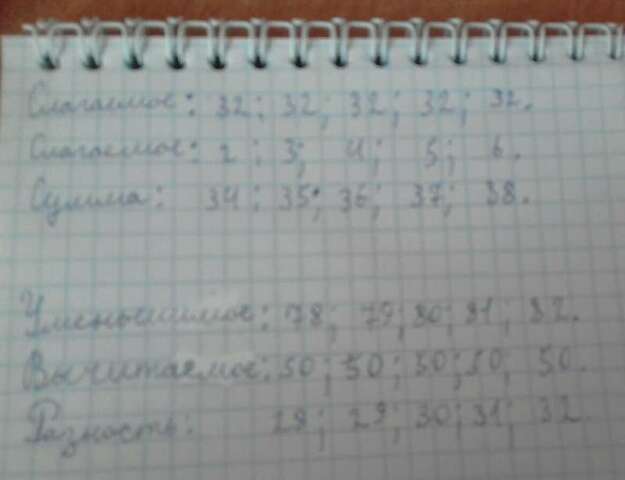 Слагаемое: 32; 32; 32; 32; 32.
Слагаемое: 2; 3; 4; 5; 6.
Сумма: 34; 35; 36; 37; 38.
Уменьшаемое: 78; 79; 80; 81; 82.
Вычитаемое: 50; 50; 50; 50; 50.
Разность: 28; 29; 30; 31; 32.